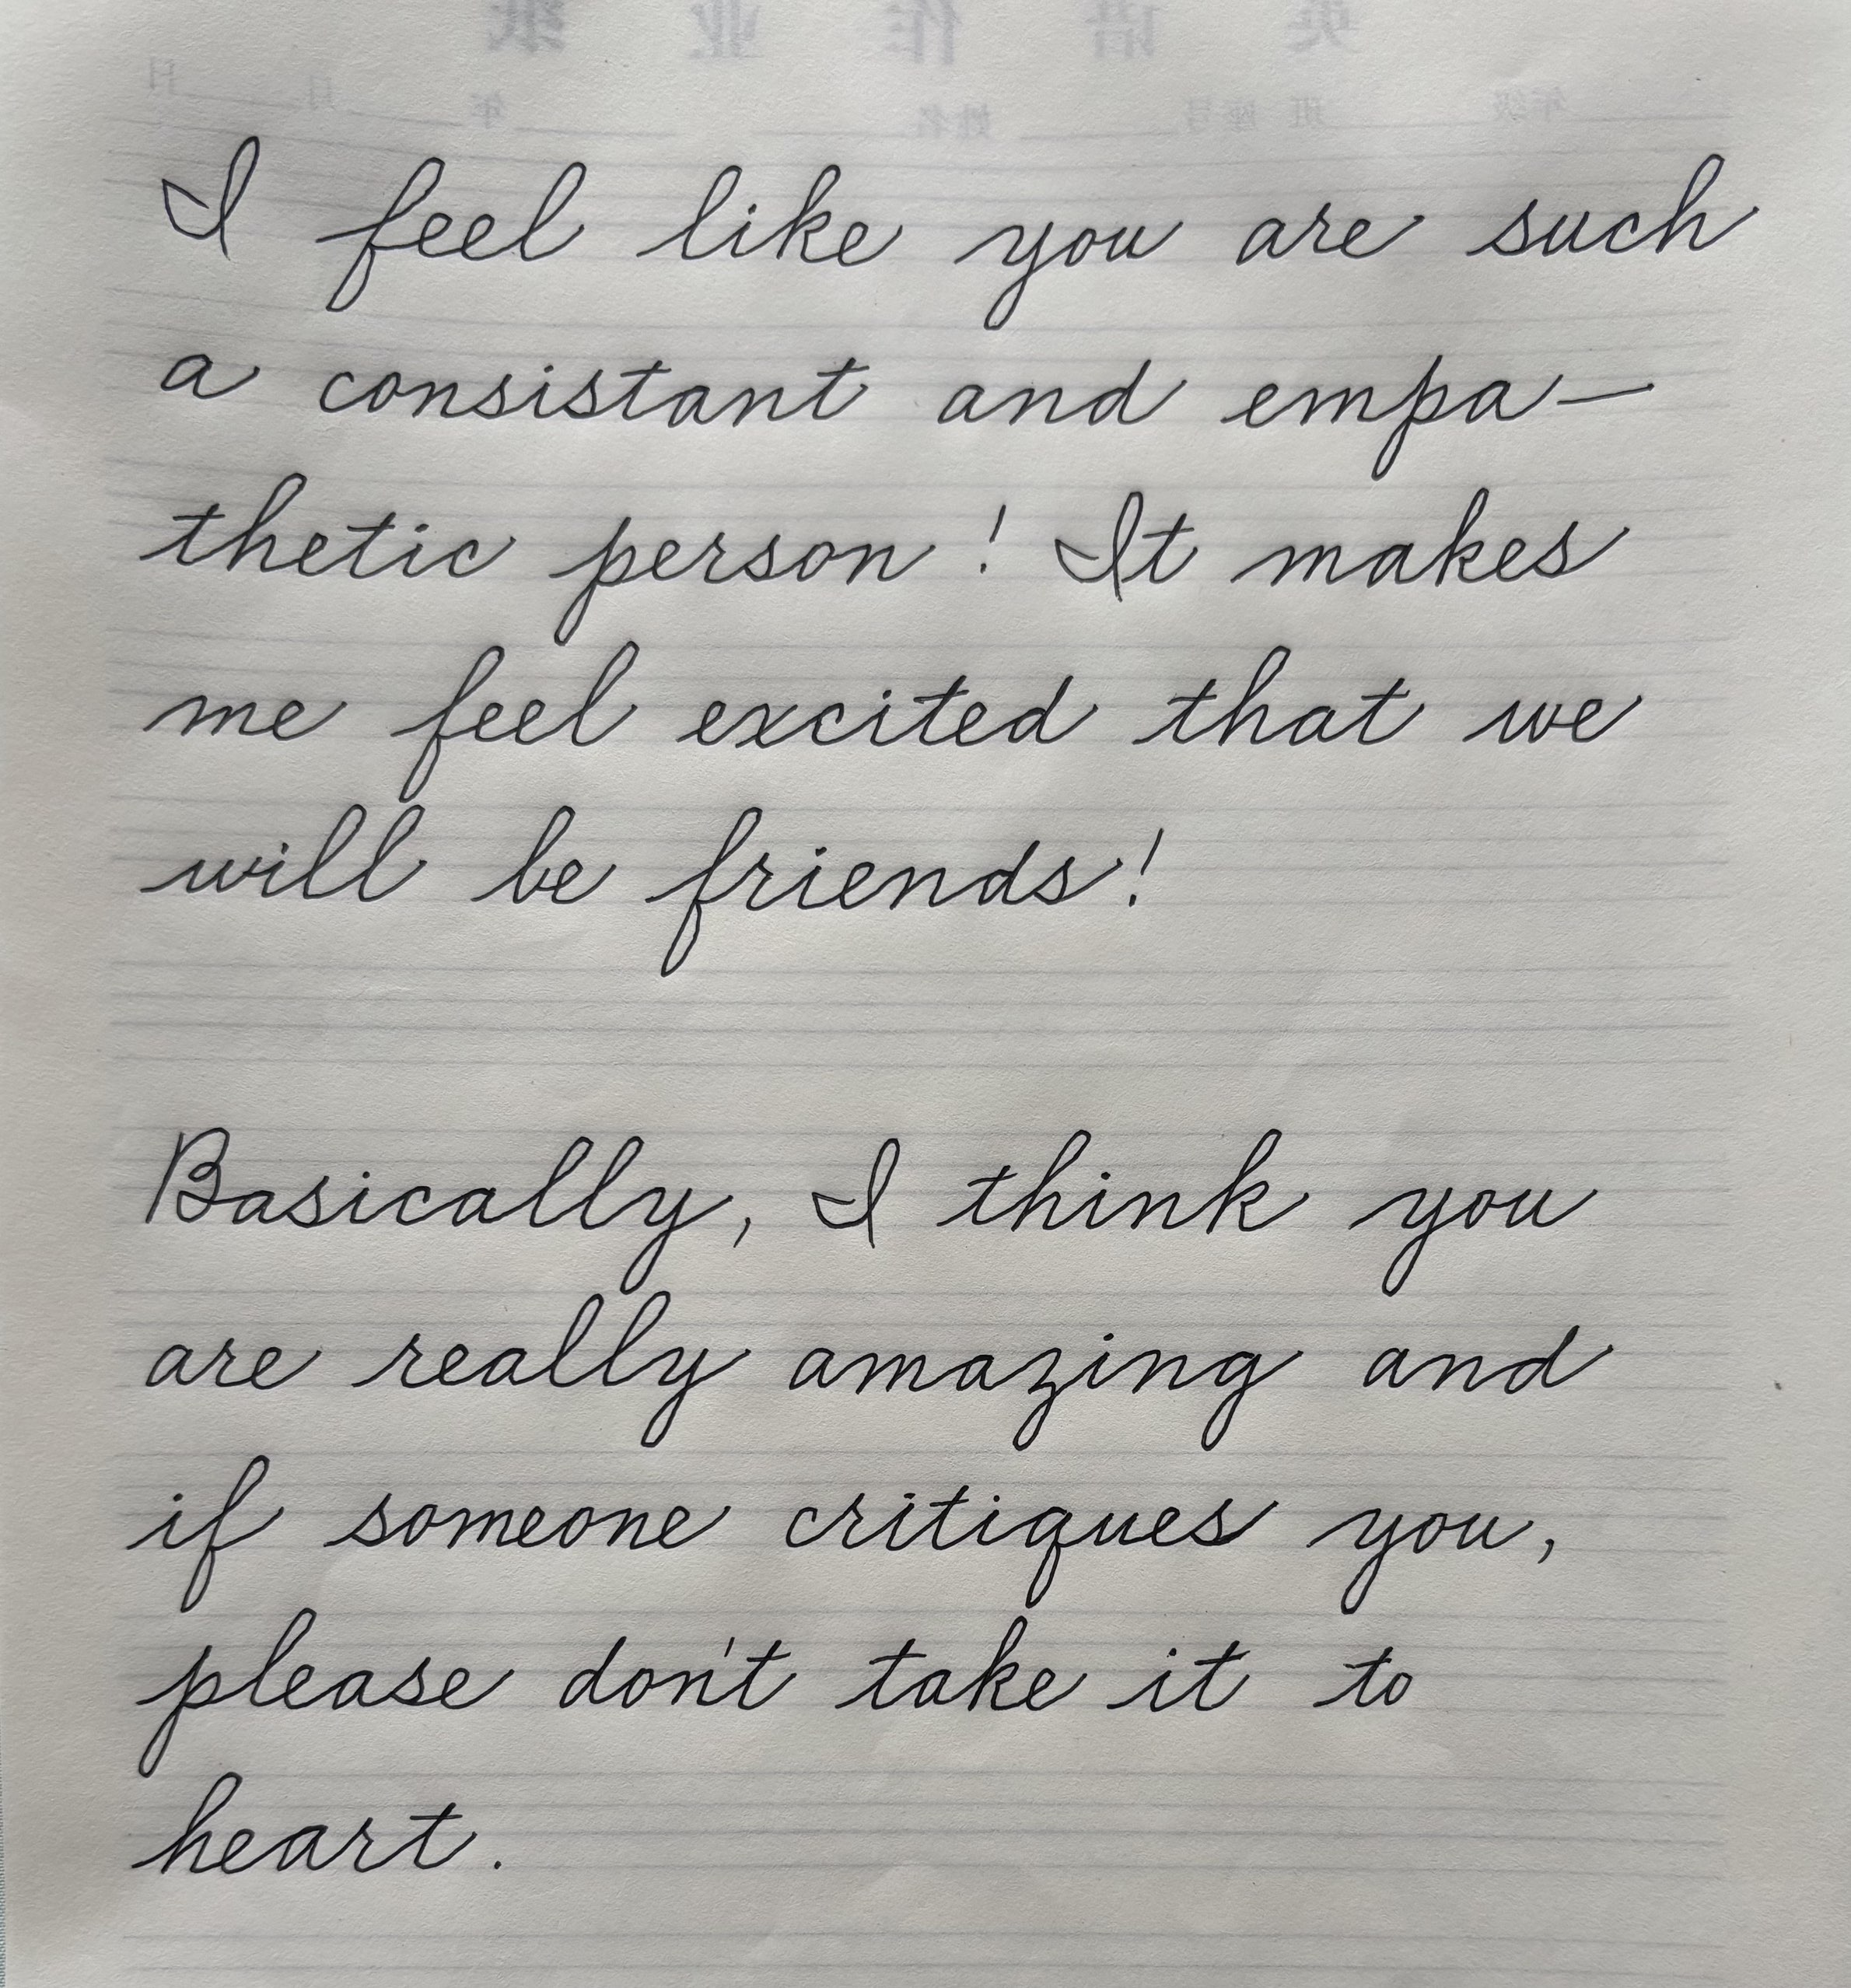 英语作业纸
年级 班 座号 姓名 年 月 日
I feel like you are such
a consistant and empa-
thetic person! It makes
me feel excited that we
will be friends!
Basically, I think you
are really amazing and
if someone critiques you,
please don't take it to
heart.